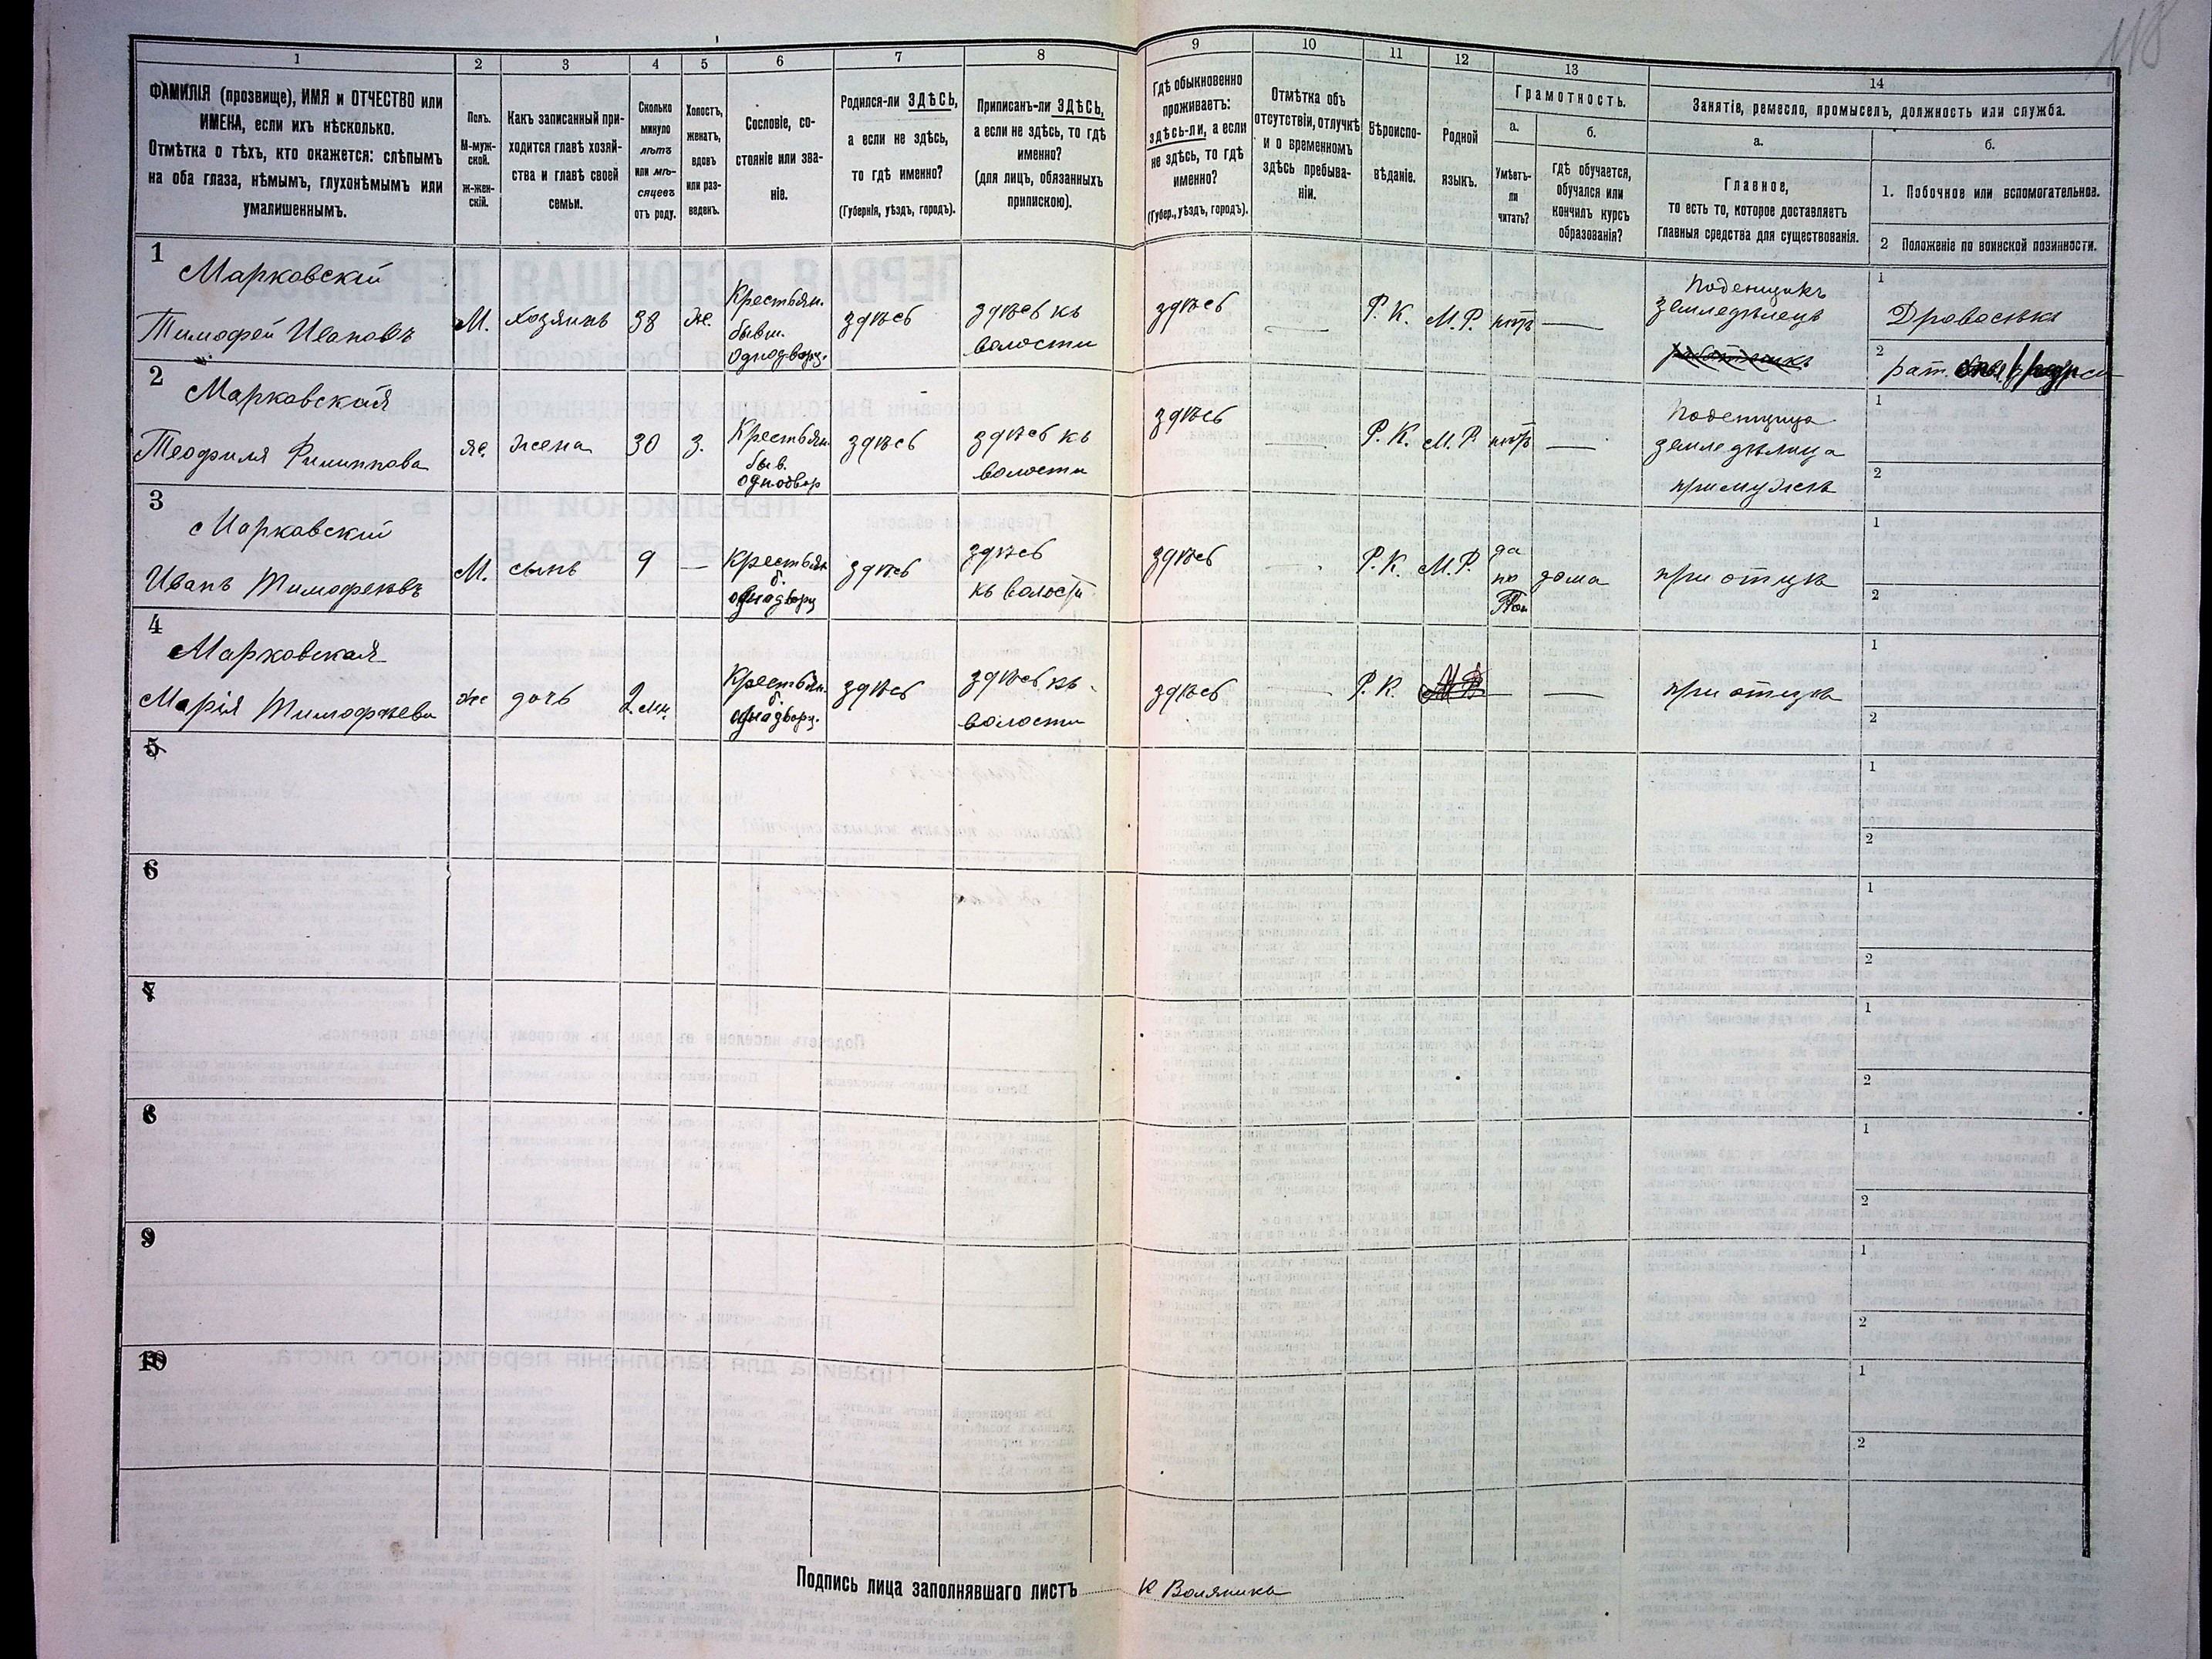 118
1
2
3
4
5
6
7
8
9
10
11
12
13
14
ФАМИЛІЯ (прозвище), ИМЯ и ОТЧЕСТВО или
ИМЕНА, если ихъ нѣсколько.
Отмѣтка о тѣхъ, кто окажется: слѣпымъ
на оба глаза, нѣмымъ, глухонѣмымъ или
умалишеннымъ.
Полъ.
М-муж-
ской.
ж-жен-
скій.
Какъ записанный при-
ходится главѣ хозяй-
ства и главѣ своей
семьи.
Сколько
минуло
лѣтъ
или мѣ-
сяцевъ
отъ роду.
Холостъ,
женатъ,
вдовъ
или раз-
веденъ.
Сословіе, со-
стояніе или зва-
ніе.
Родился-ли ЗДѢСЬ,
а если не здѣсь,
то гдѣ именно?
(Губернія, уѣздъ, городъ).
Приписанъ-ли ЗДѢСЬ,
а если не здѣсь, то гдѣ
именно?
(для лицъ, обязанныхъ
припискою).
Гдѣ обыкновенно
проживаетъ:
здѣсь-ли, а если
не здѣсь, то гдѣ
именно?
(Губер., уѣздъ, городъ).
Отмѣтка объ
отсутствіи, отлучкѣ
и о временномъ
здѣсь пребыва-
ніи.
Вѣроиспо-
вѣданіе.
Родной
языкъ.
Грамотность.
а.
Умѣетъ-
ли
читать?
б.
гдѣ обучается,
обучался или
кончилъ курсъ
образованія?
Занятіе, ремесло, промыселъ, должность или служба.
а.
Главное,
то есть то, которое доставляетъ
главныя средства для существованія.
б.
1. Побочное или вспомогательное.
2 Положеніе по воинской повинности.
1
Марковскій
Тимофей Ивановъ
М.
хозяинъ
38
Же.
Крестьян.
бывш.
однодворц.
здѣсь
здѣсь къ
волости
здѣсь
Р. К.
М. Р.
нѣтъ
Поденщикъ
земледѣлецъ
1
Дровосѣкъ
2
рат.
2
Марковская
Теофиля Филиппова
же.
жена
30
З.
Крестьян.
быв.
однодвор
здѣсь
здѣсь къ
волости
здѣсь
Р. К.
М. Р
нѣтъ
Поденщица
земледѣлица
при мужѣ
1
2
3
Марковскій
Иванъ Тимофеевъ
М.
сынъ
9
Крестьян
б.
однодворц
здѣсь
здѣсь
къ волости
здѣсь
Р. К.
М. Р.
да
по
Пол
дома
при отцѣ
1
2
4
Марковская
Марія Тимофѣева
же
дочь
2 мѣс.
Крестьян.
б.
однодворц.
здѣсь
здѣсь къ
волости
здѣсь
Р. К.
М Р
при отцѣ
1
2
5
1
2
6
1
2
7
1
2
8
1
2
9
1
2
10
1
2
Подпись лица заполнявшаго листъ